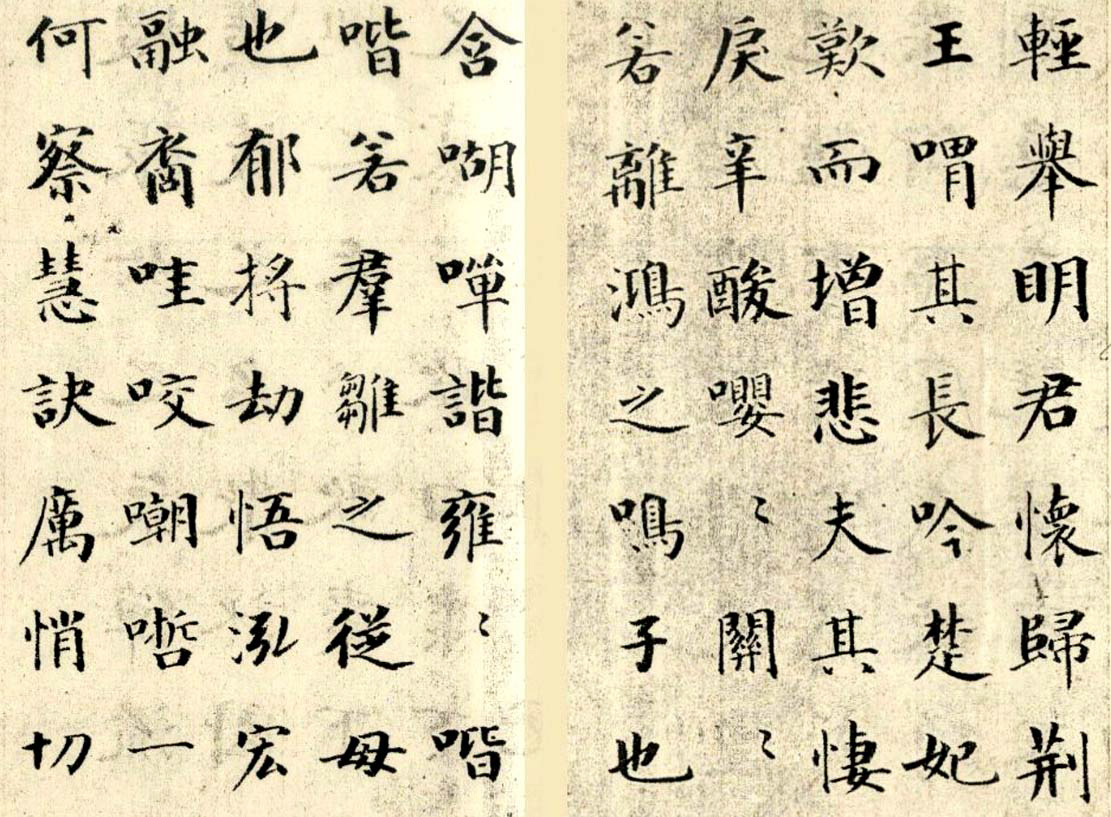 輕舉明君懷歸荊
王喟其長吟楚妃
歎而增悲夫其悽
戾辛酸嚶〻關〻
若離鴻之鳴子也
含㗅嘽諧雍〻喈
喈若羣雛之從母
也郁捋劫悟泓宏
融裔哇咬嘲哳一
何察慧訣厲悄切